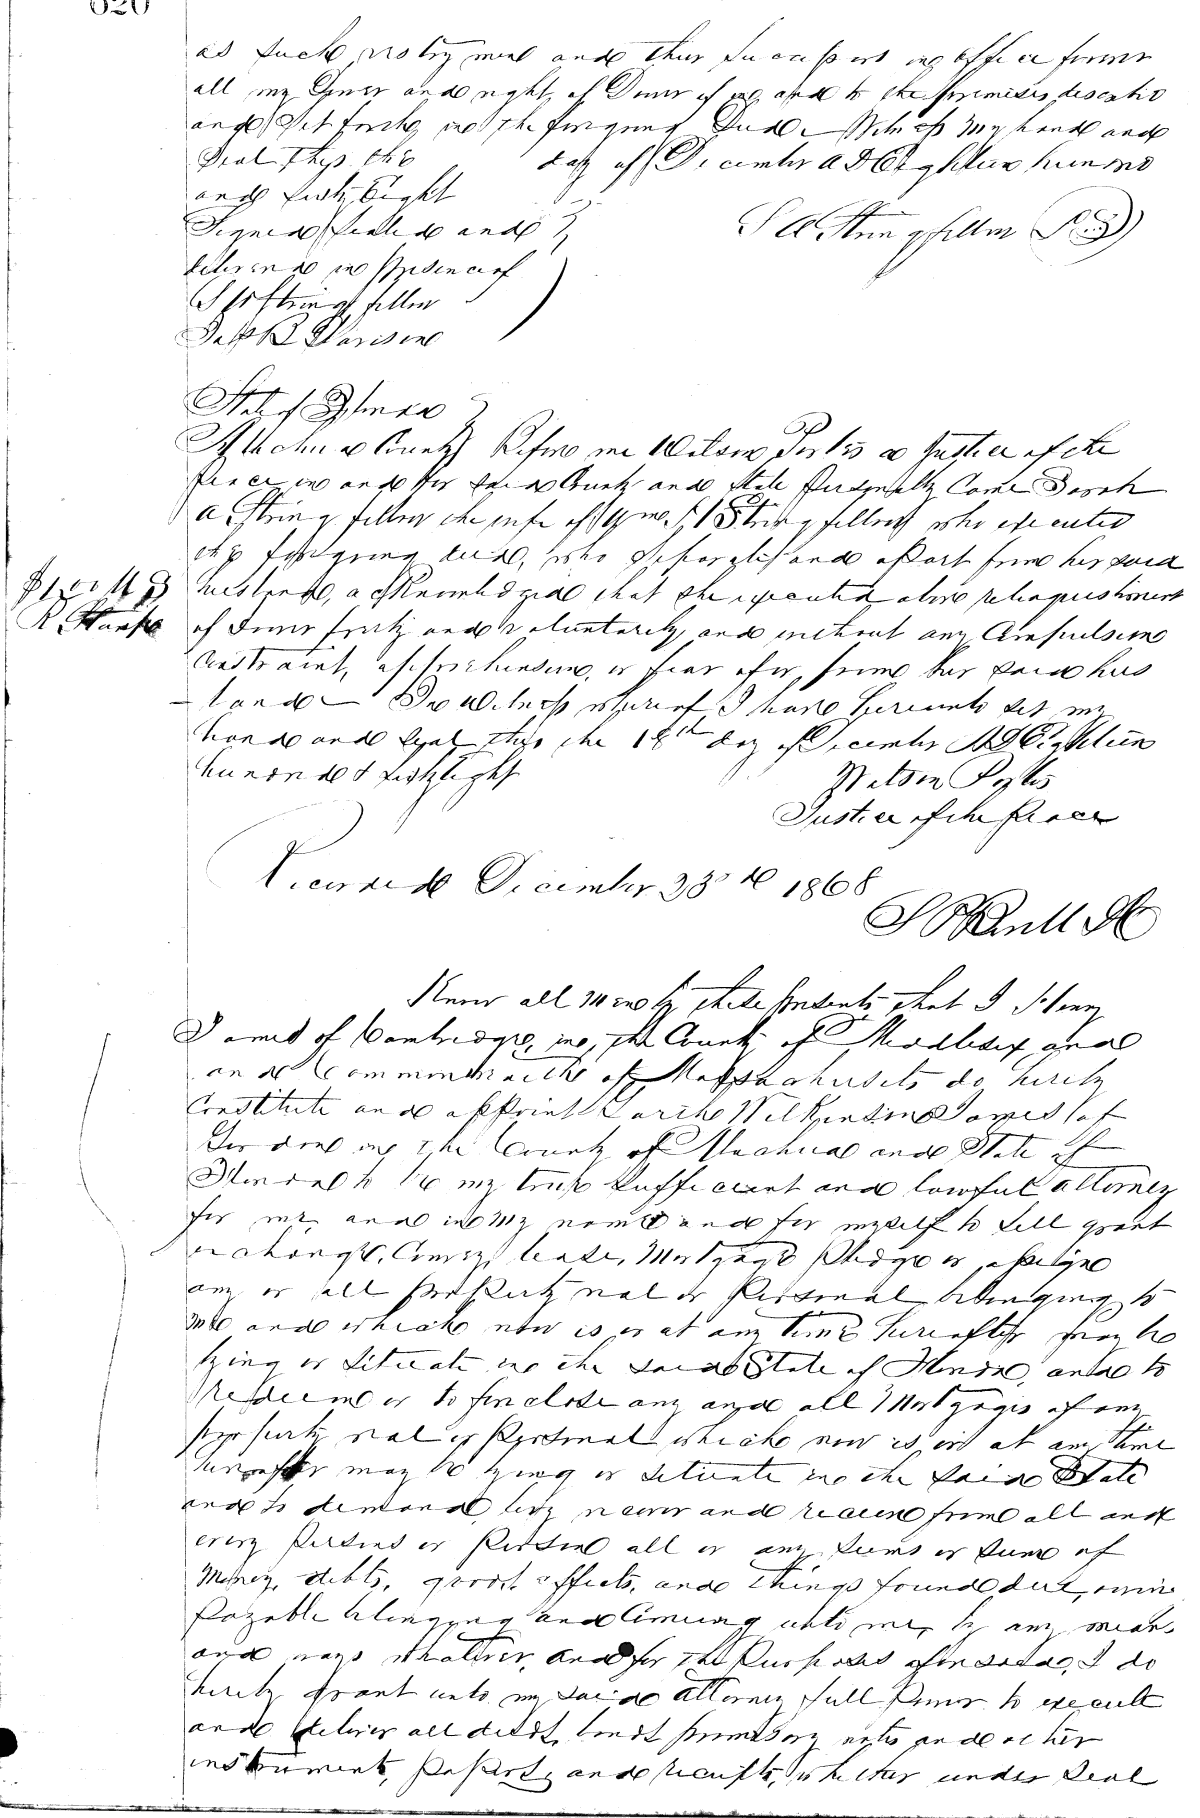 620
as such trustees and their successors in office forever
all my Dower and right of Dower of in and to the premises described
and set forth in the foregoing Deed. Witness my hand and
Seal this the day of December A D Eighteen hundred
and sixty Eight
Signed sealed and
delivered in presence of
S A Stringfellow
S Stringfellow
Harrison
State of Florida
Alachua County Before me Wilson Portis a Justice of the
Peace in and for said County and State Personally Came Sarah
A Stringfellow the wife of Stringfellow who executed
the foregoing deed, who separately and apart from her said
husband, acknowledged that she executed above relinquishment
of Dower freely and voluntarily and without any Compulsion
Constraint, apprehension, or fear of or from her said hus
band In Witness whereof I have hereunto set my
hand and seal this the 18th day of December A D Eighteen
hundred & sixty eight
Wilson Portis
Justice of the Peace
Recorded December 23rd 1868
Know all Men by these presents that I Henry
James of Cambridge, in the County of Middlesex and
and Commonwealth of Massachusetts do hereby
Constitute and appoint Garth Wilkinson James of
Gordon in the County of Alachua and State of
Florida to be my true sufficient and lawful attorney
for me and in my name and for myself to sell grant
exchange, Convey, lease, Mortgage Pledge or assign
any or all property real or Personal belonging to
me and which now is or at any time hereafter may be
lying or situate in the said State of Florida, and to
redeem or to foreclose any and all Mortgages of any
property real or Personal which now is or at any time
hereafter may be lying or situate in the said State
and to demand levy recover and receive from all and
every Persons or Person all or any sums or sum of
Money, debts, goods effects, and things found due, owing
Payable belonging and Coming unto me, by any means
and ways whatever, and for the Purposes aforesaid, I do
hereby grant unto my said attorney full Power to execute
and deliver all deeds, bonds promissory notes and other
instruments, Papers, and receipts, whether under Seal